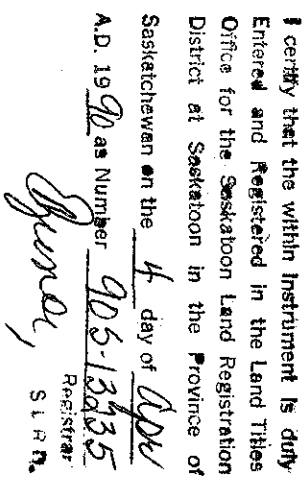 I certify that the within instrument is duly
Entered and Registered in the Land Titles
Office for the Saskatoon Land Registration
District at Saskatoon in the Province of
Saskatchewan on the 4 day of Apr
A.D. 1990 as Number 90S-13935
Registrar
S L R D.